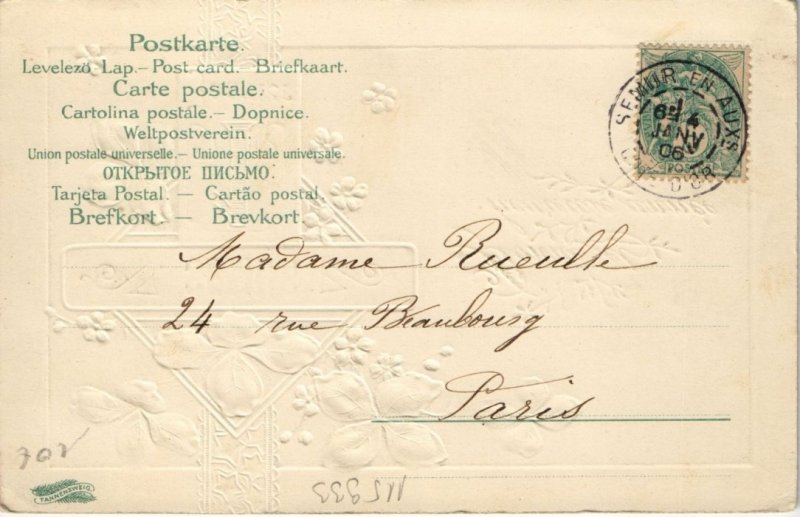 Postkarte.
Levelező Lap. — Post card. — Briefkaart.
Carte postale.
Cartolina postale. — Dopnice.
Weltpostverein.
Union postale universelle. — Unione postale universale.
ОТКРЫТОЕ ПИСЬМО.
Tarjeta Postal. — Cartão postal.
Brefkort. — Brevkort.
SEMUR EN AUXS
4
JANV
06
D'OR
Madame Rueulle
24 rue Beaubourg
Paris
702
TANNENZWEIG
115933